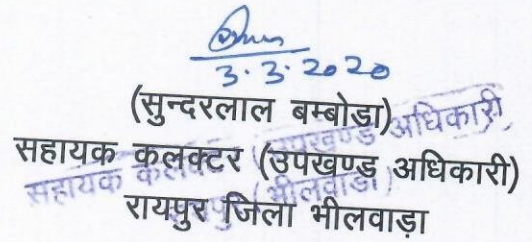 3.3.2020
(सुन्दरलाल बम्बोडा)
सहायक कलक्टर (उपखण्ड अधिकारी)
रायपुर जिला भीलवाड़ा
सहायक कलक्टर (उपखण्ड अधिकारी)
(भीलवाडा)